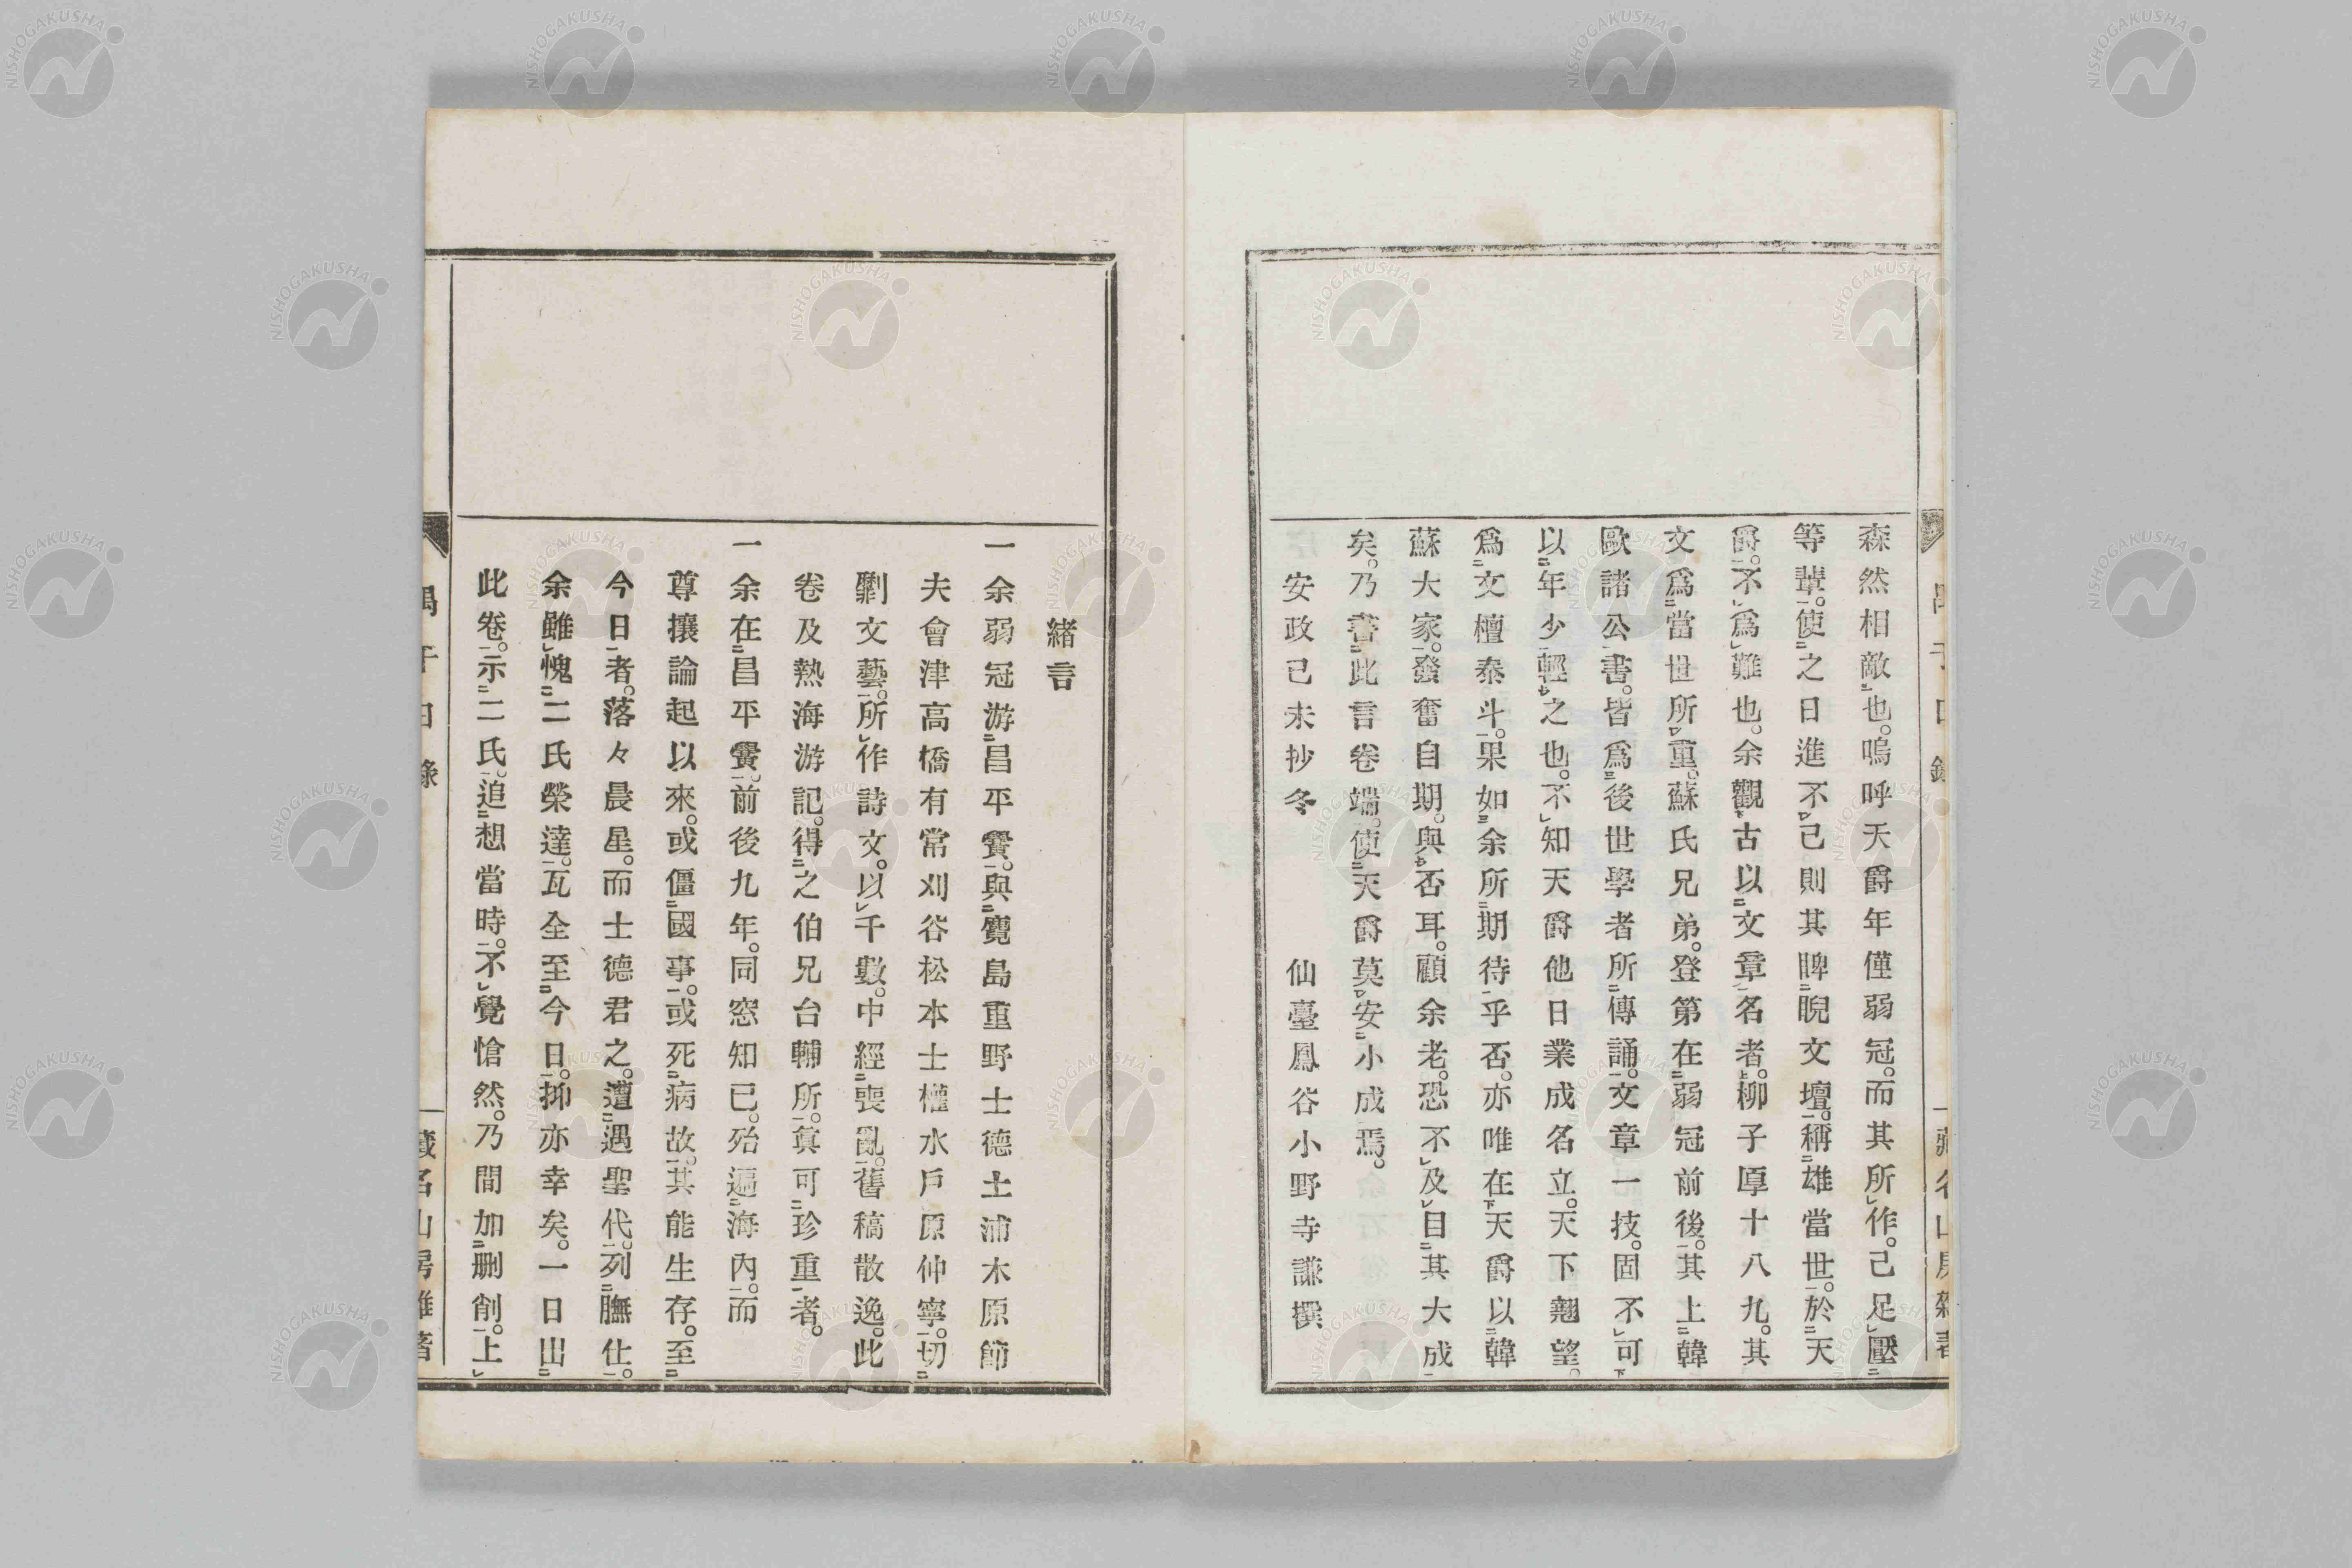 森然相敵也。嗚呼天爵年僅弱冠。而其所作。己足壓
等輩。使之日進不已則其睥睨文壇。稱雄當世。於天
爵。不爲難也。余觀古以文章名者。柳子厚十八九。其
文爲當世所重。蘇氏兄弟。登第在弱冠前後。其上韓
歐諸公書。皆爲後世學者所傳誦。文章一技。固不可
以年少輕之也。不知天爵他日業成名立。天下翹望。
爲文檀泰斗。果如余所期待乎否。亦唯在天爵以韓
蘇大家。發奮自期。與否耳。顧余老。恐不及目其大成
矣。乃書此言卷端。使天爵莫安小成焉。
安政己未抄冬　仙臺鳳谷小野寺謙撰
緒言
一余弱冠游昌平黌。與霓島重野士德土浦木原節
夫會津高橋有常刈谷松本士權水戶原仲寧。切
劘文藝。所作詩文。以千數。中經喪亂。舊稿散逸。此
卷及熱海游記。得之伯兄台輔所。眞可珍重者。
一余在昌平黌。前後九年。同窓知已。殆遍海內。而
尊攘論起以來。或僵國事。或死病故。其能生存。至
今日者。落々晨星。而士德君之。遭遇聖代。列膴仕。
余雖愧二氏榮達。瓦全至今日。抑亦幸矣。一日出
此卷。示二氏。追想當時。不覺愴然。乃間加删削。上
藏名山房雜著